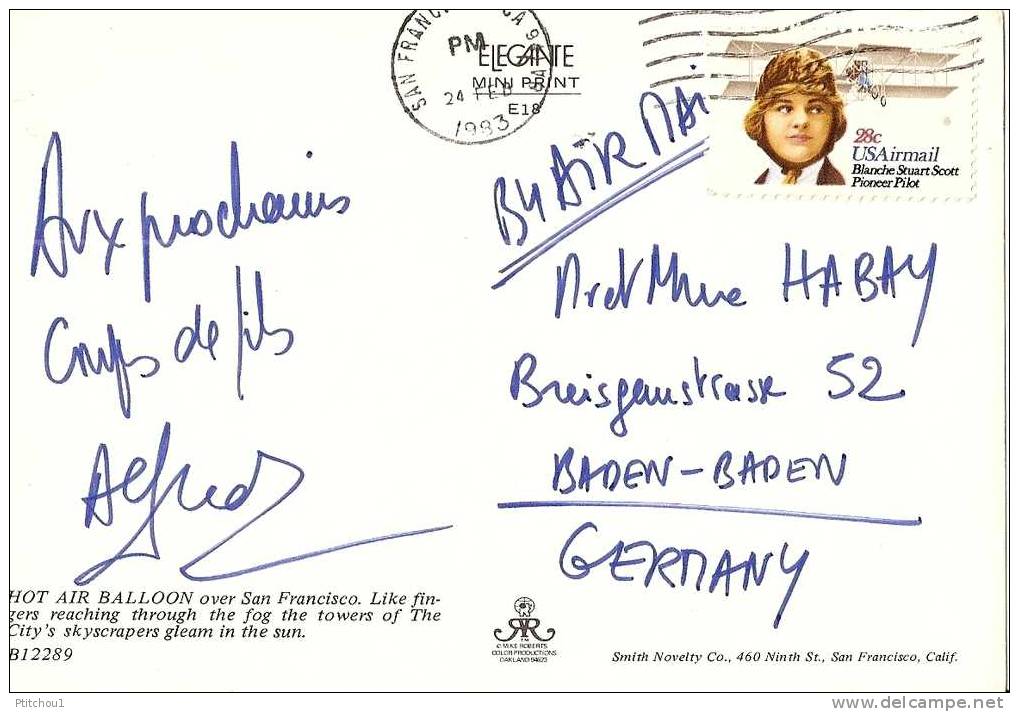 SAN FRANCISCO, CA 940
PM
24 FEB
1983
ELEGANTE
MINI PRINT
E18
28c
USAirmail
Blanche Stuart Scott
Pioneer Pilot
By AIR MAIL
Aux prochains
Coups de fils
Alfred
Mr et Mme HABAY
Breisgaustrasse 52
BADEN-BADEN
GERMANY
HOT AIR BALLOON over San Francisco. Like fin-
gers reaching through the fog the towers of The
City's skyscrapers gleam in the sun.
B12289
© MIKE ROBERTS
COLOR PRODUCTIONS
OAKLAND 94623
Smith Novelty Co., 460 Ninth St., San Francisco, Calif.
Ptitchou1
delcampe.net